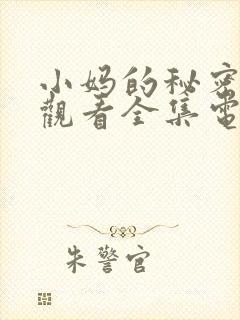 小妈的秘密
觀看全集電
朱警官